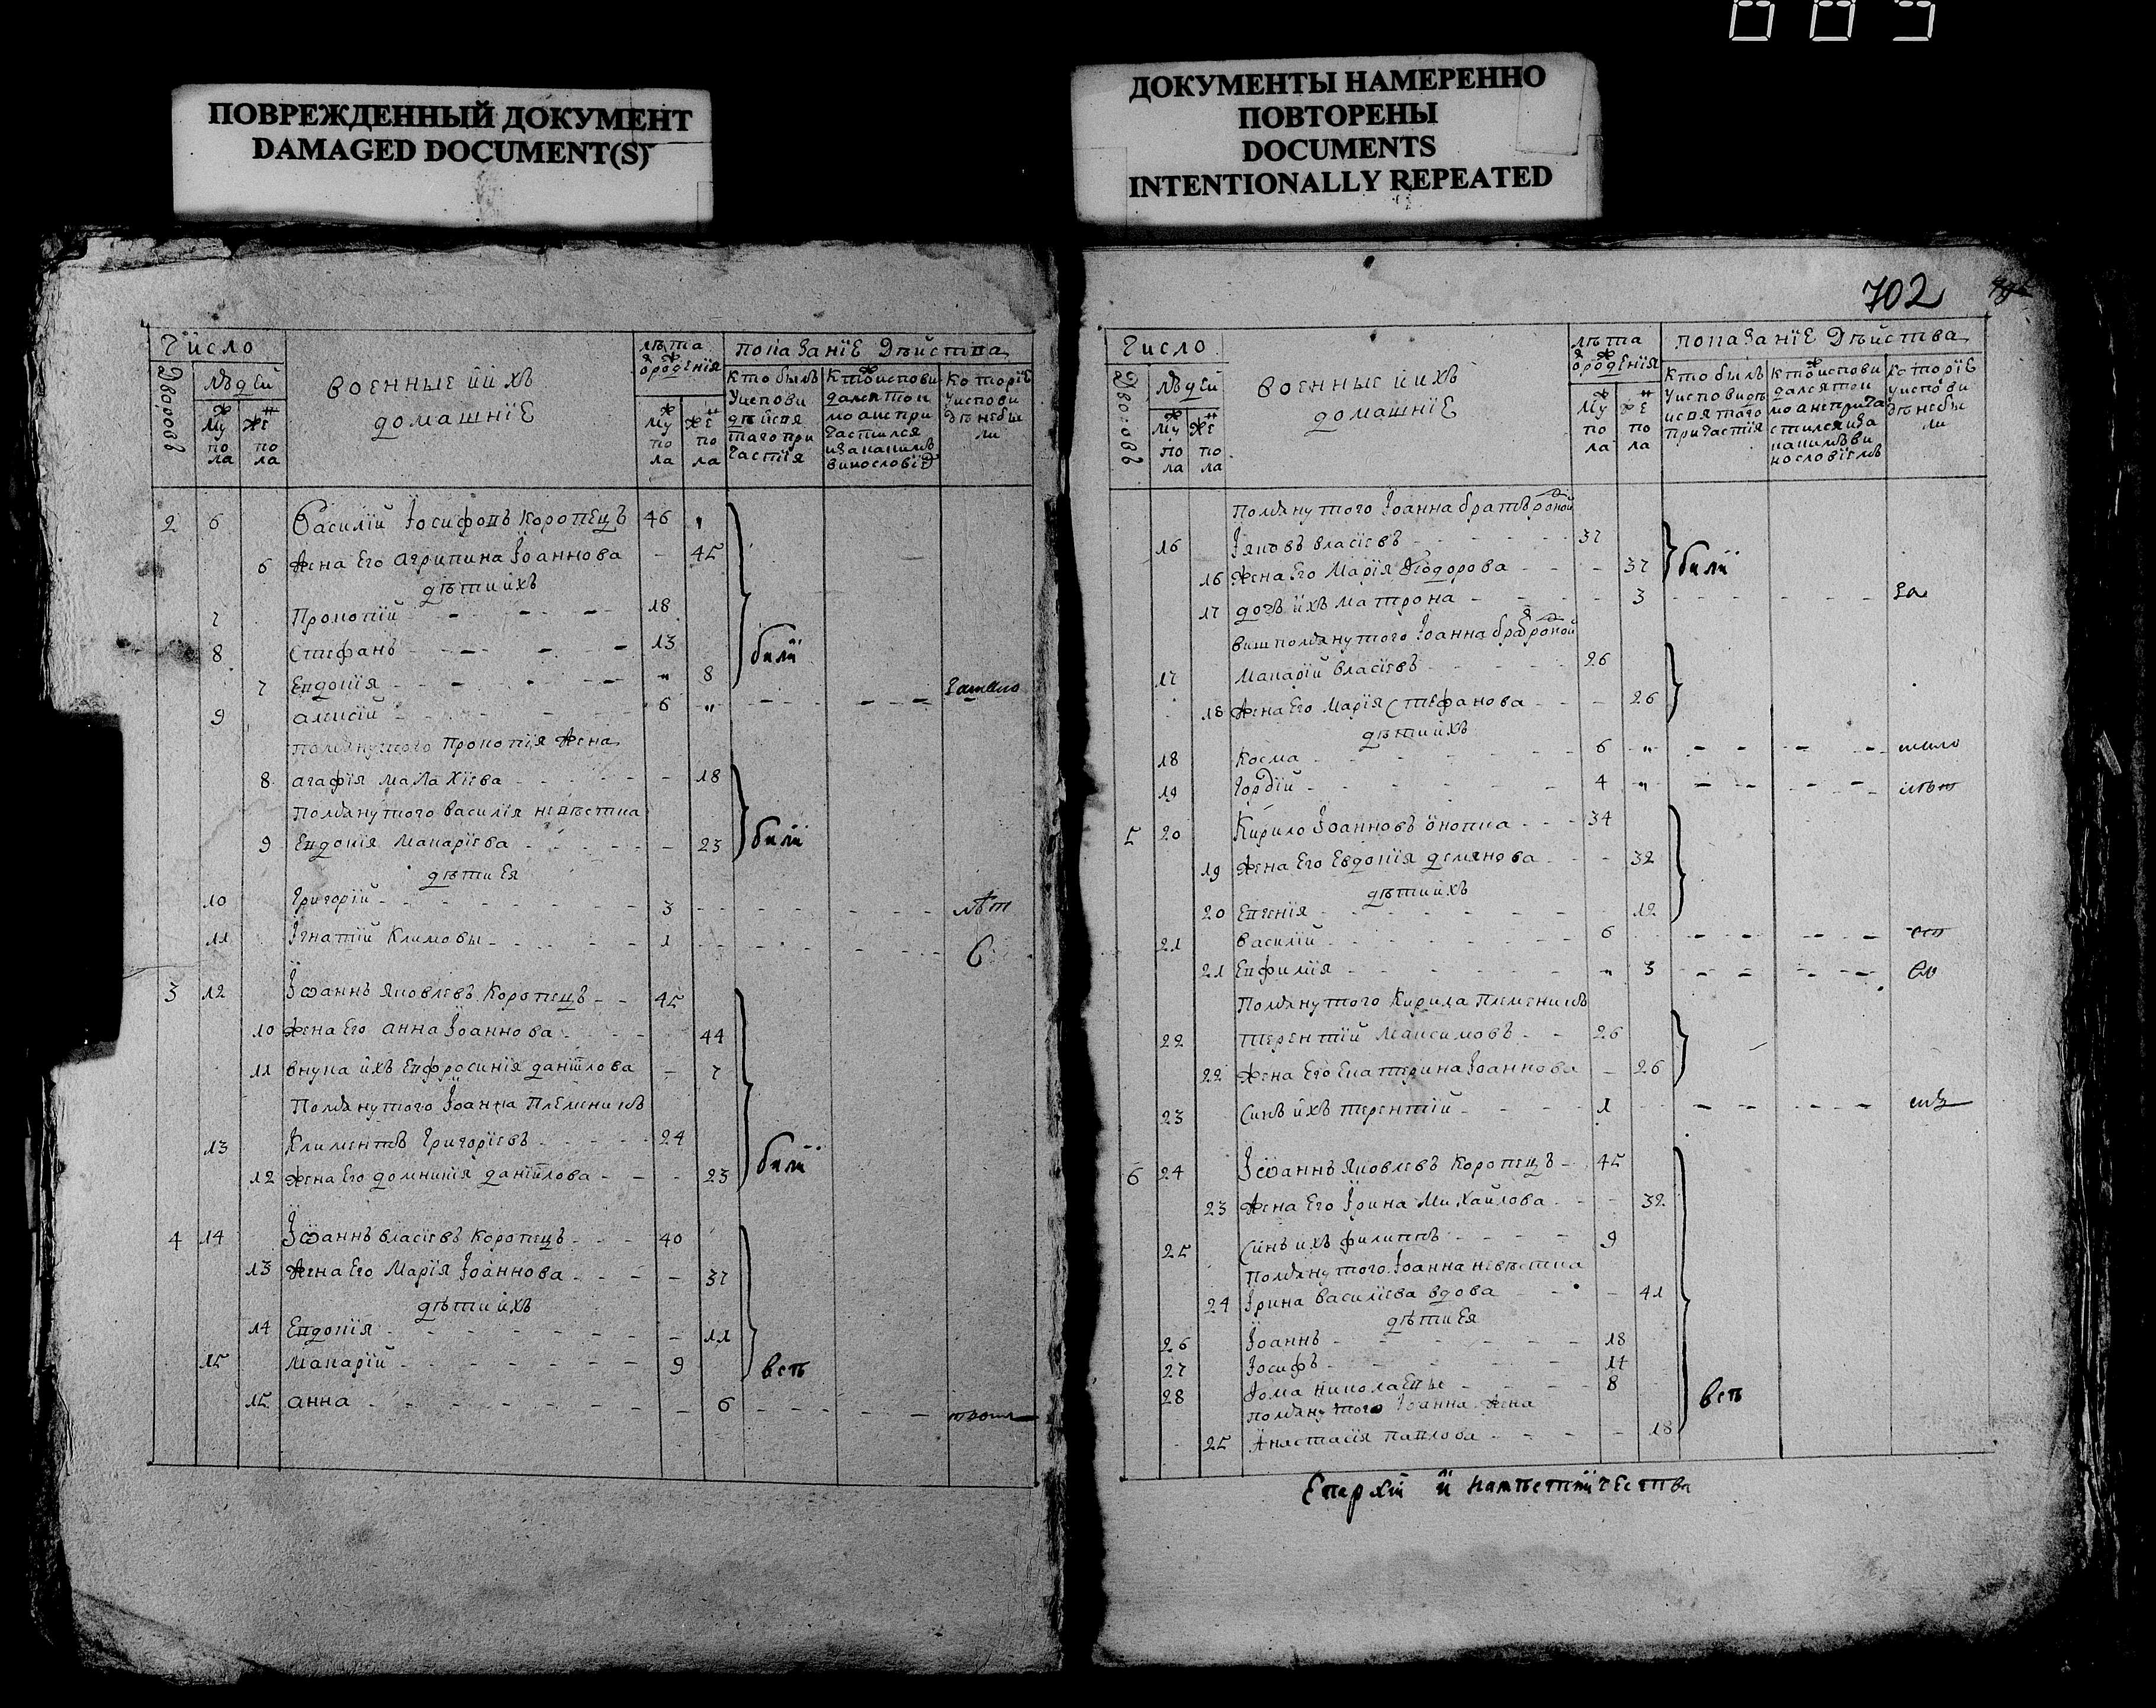 ПОВРЕЖДЕННЫЙ ДОКУМЕНТ
DAMAGED DOCUMENT(S)
ДОКУМЕНТЫ НАМЕРЕННО
ПОВТОРЕНЫ
DOCUMENTS
INTENTIONALLY REPEATED
Число
Дворовъ
людей
Му по ла
Же по ла
военные и ихъ
домашніе
лѣта
ѿ рожденія
Му по ла
Же по ла
показаніе Дѣйства
Кто былъ
Уисповѣ
дѣ исвя
таго при
частія
Кто испові
дался тол
ко а не при
частился
и за какимъ
винословіемъ
Которіе
уиспові
ди не бы
ли
2 6 Василій Іосифовъ Коропецъ 46
6 Жена Его Агрипина Іоаннова - 45
дѣти ихъ
7 Прокопій 18
8 Стефанъ 13
били
7 Евдокія 8
9 Алексій 6
помянутого Прокопія Жена
8 Агафія Малахіева - 18
Помянутого Василія невѣстка
9 Евдокія Макаріева - 23 били
дѣти Ея
10 Григорій 3 лѣт
11 Ігнатій Климовы 1
3 12 Іѡаннъ Яковлевъ Коропецъ 45
10 Жена Его Анна Іоаннова 44
11 внука ихъ Евфросинія Даніилова - 7
Помянутого Іоанна Племеникъ
13 Климентъ Григоріевъ 24
били
12 Жена Его Домникія Даніилова - 23
4 14 Іѡаннъ Власіевъ Коропецъ 40
13 Жена Его Марія Іоаннова - 37
дѣти ихъ
14 Евдокія - 11
15 Макарій 9 всѣ
15 Анна - 6
702
Число
Дворовъ
людей
Му по ла
Же по ла
военные и ихъ
домашніе
лѣта
ѿ рожденія
Му по ла
Же по ла
показаніе Дѣйства
Кто былъ
Уисповидѣ
исвятаго
причастія
Кто испові
дался тол
ко а не прича
стился и за
какимъ ви
нословіемъ
Которіе
уиспові
ди не бы
ли
Помянутого Іоанна братъ родной
16 Іяковъ Власіевъ 37
16 Жена Его Марія Феодорова - 37 били
17 дочъ ихъ Матрона - 3 за
вишпомянутого Іоанна братъ родной
17 Макарій Власіевъ 26
18 Жена Его Марія Стефанова - 26
дѣти ихъ
18 Косма 6
19 Гордій 4
5 20 Кирило Іоанновъ Онопка 34
19 Жена Его Евдокія Демянова - 32
дѣти ихъ
20 Евгенія 12
21 Василій 6
21 Евфимія 3
Помянутого Кирила Племеникъ
22 Терентій Максимовъ 26
22 Жена Его Екатерина Іоаннова - 26
23 Синъ ихъ Терентій 1
6 24 Іѡаннъ Яковлевъ Коропецъ 45
23 Жена Его Ірина Михайлова - 32
25 Синъ ихъ Филиппъ 9
Помянутого Іоанна невѣстка
24 Ірина Василіева вдова - 41
дѣти Ея
26 Іоаннъ 18
27 Іосифъ 14
28 Фома Николаевы 8 всѣ
помянутого Іоанна Жена
25 Анастасія Павлова - 18
Епархіи и намѣстничества